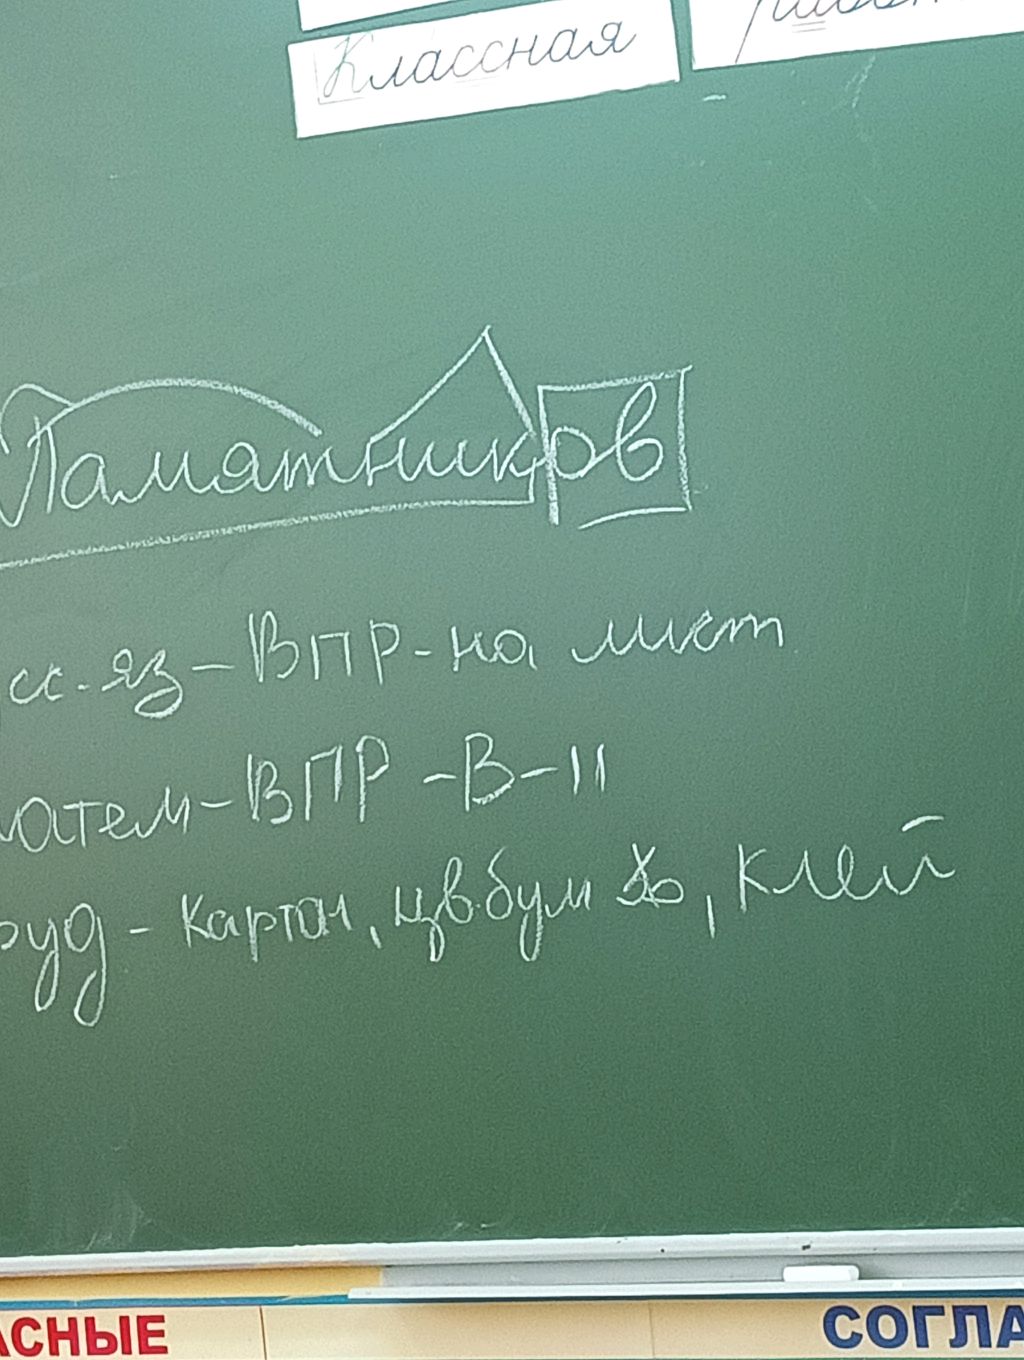 Классная
Памятников
сс. яз - ВПР - на лист
матем - ВПР - В - 11
руд - картон, цв. бум, клей
АСНЫЕ
СОГЛА